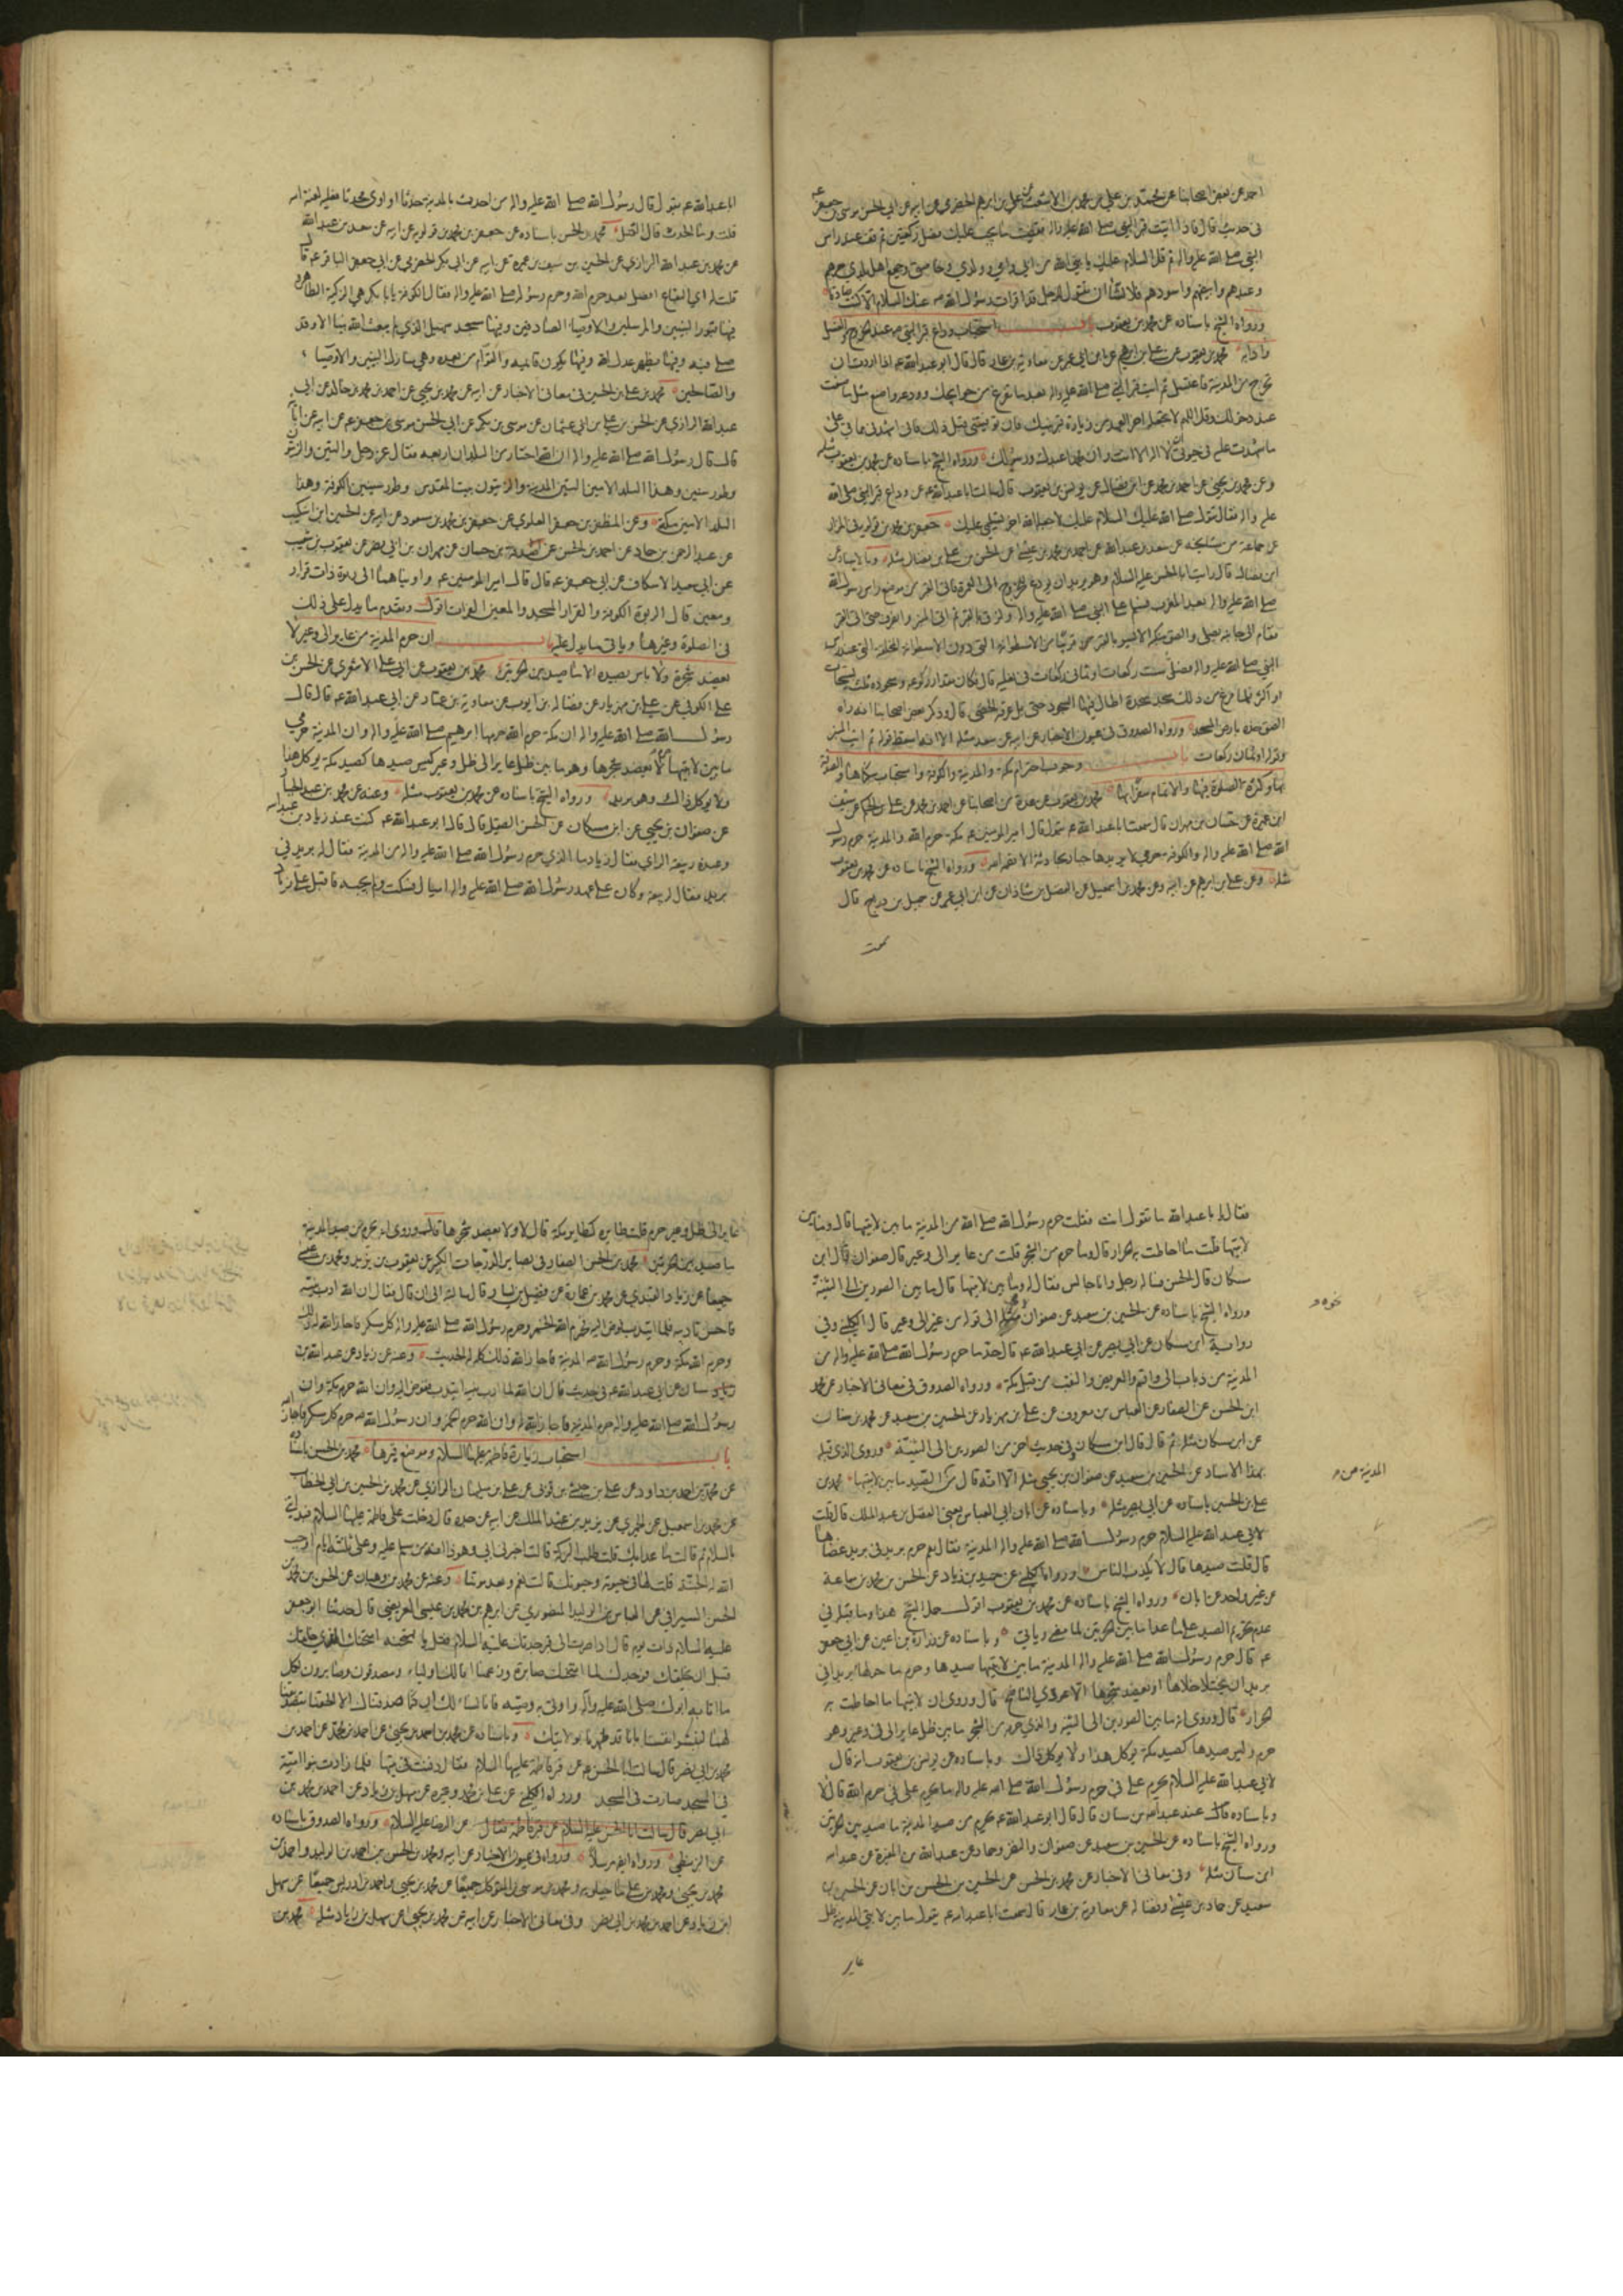 احمد عن بعض اصحابنا عن محمد بن علي بن محمد بن الاشعث عن علي بن ابرهيم الحضرمي عن ابيه عن ابي الحسن موسى بن جعفر ع
في حديث قال فاذا اتيت قبر النبي صلى الله عليه واله فقضيت ما يجب عليك فصل ركعتين ثم قف عند راس
النبي صلى الله عليه واله ثم قل السلام عليك يا نبي الله من ابي وامي وولدي وخاصتي وجميع اهل بلدي حرهم
وعبدهم وابيضهم واسودهم فلا تشاء ان تقول للرجل قد اقرات رسول الله صه عنك السلام الا كنت صادقا
ورواه الشيخ باسناده عن محمد بن يعقوب باب استحباب وداع قبر النبي صه عند الخروج والغسل
وآدابه محمد بن يعقوب عن علي بن ابرهيم عن ابن ابي عمير عن معاوية بن عمار قال قال ابو عبد الله عه اذا اردت ان
تخرج من المدينة فاغتسل ثم ائت قبر النبي صلى الله عليه واله بعد ما تفرغ من حوائجك وودعه واصنع مثل ما صنعت
عند دخولك وقل اللهم لا تجعله اخر العهد من زيارة قبر نبيك فان توفيتني قبل ذلك فاني اشهد في مماتي على
ما شهدت عليه في حيوتي ان لا اله الا انت وان محمدا عبدك ورسولك ورواه الشيخ باسناده عن محمد بن يعقوب مثله
وعن محمد بن يحيى عن احمد بن محمد عن ابن فضال عن يونس بن يعقوب قال سالت ابا عبد الله عه عن وداع قبر النبي صلى الله
عليه واله فقال تقول صلى الله عليك السلام عليك لا جعله الله اخر تسليمي عليك جعفر بن محمد بن قولويه في المزار
عن جماعة من مشايخه عن سعد بن عبد الله عن احمد بن محمد بن عيسى عن الحسن بن علي بن فضال مثله وبالاسناد عن
ابن فضال قال رايت ابا الحسن عليه السلام وهو يريد ان يودع للخروج الى العمرة فاتى القبر من موضع راس رسول الله
صلى الله عليه واله بعد المغرب فسلم على النبي صلى الله عليه واله ولزق بالقبر ثم اتى المنبر وانصرف حتى اتى القبر
فقام الى جانبه يصلي والصق منكبه الايسر بالقبر قريبا من الاسطوانة التي دون الاسطوانة المخلقة التي عند راس
النبي صلى الله عليه واله فصلى ست ركعات او ثماني ركعات في نعليه قال فكان مقدار ركوعه وسجوده ثلث تسبيحات
او اكثر فلما فرغ من ذلك سجد سجدة اطال فيها السجود حتى بل عرقه الحصى قال وذكر بعض اصحابنا انه راه
الصق خده بارض المسجد ورواه الصدوق في عيون الاخبار عن ابيه عن سعد مثله الا انه اسقط قوله ثم اتيت المنبر
وقوله او ثمان ركعات باب وجوب احترام مكة والمدينة والكوفة واستحباب سكناها والصدقة
بها وكثرة الصلوة فيها والاتمام سفرا بها محمد بن يعقوب عن عدة من اصحابنا عن احمد بن محمد عن علي بن الحكم عن سيف
ابن عميرة عن حسان بن مهران قال سمعت ابا عبد الله عه يقول قال امير المؤمنين عه مكة حرم الله والمدينة حرم رسول
الله صلى الله عليه واله والكوفة حرمي لا يريدها جبار بحادثة الا قصمه الله ورواه الشيخ باسناده عن محمد بن يعقوب
مثله وعن علي بن ابرهيم عن ابيه وعن محمد بن اسمعيل عن الفضل بن شاذان عن ابن ابي عمير عن جميل بن دراج قال
سمعت
ابا عبد الله عه يقول قال رسول الله صلى الله عليه واله من احدث بالمدينة حدثا او اوى محدثا فعليه لعنة الله
قلت وما الحدث قال القتل محمد بن الحسن باسناده عن جعفر بن محمد بن قولويه عن ابيه عن سعد بن عبد الله
عن محمد بن عبد الله الرازي عن الحسين بن سيف بن عميرة عن ابيه عن ابي بكر الحضرمي عن ابي جعفر الباقر عه قال
قلت له اي البقاع افضل بعد حرم الله وحرم رسوله صلى الله عليه واله فقال الكوفة يا ابا بكر هي الزكية الطاهرة
فيها قبور النبيين والمرسلين والاوصياء الصادقين وفيها مسجد سهيل الذي لم يبعث الله نبيا الا وقد
صلى فيه وفيها يظهر عدل الله وفيها يكون قائمه والقوام من بعده وهي منازل النبيين والاوصياء
والصالحين محمد بن علي بن الحسين في معاني الاخبار عن ابيه عن محمد بن يحيى عن احمد بن محمد بن خالد عن ابي
عبد الله الرازي عن الحسن بن علي بن ابي عثمان عن موسى بن بكر عن ابي الحسن موسى بن جعفر عه عن ابيه عن آبائه
قال قال رسول الله صلى الله عليه واله ان الله اختار من البلدان اربعة فقال عز وجل والتين والزيتون
وطور سينين وهذا البلد الامين التين المدينة والزيتون بيت المقدس وطور سينين الكوفة وهذا
البلد الامين مكة وعن المظفر بن جعفر العلوي عن جعفر بن محمد بن مسعود عن ابيه عن الحسين بن اشكيب
عن عبد الرحمن بن حماد عن احمد بن الحسن عن صدقة بن حسان عن مهران بن ابي نصر عن يعقوب بن شعيب
عن ابي سعيد الاسكاف عن ابي جعفر عه قال قال امير المؤمنين عه واويناهما الى ربوة ذات قرار
ومعين قال الربوة الكوفة والقرار المسجد والمعين الفرات اقول وتقدم ما يدل على ذلك
في الصلوة وغيرها وياتي ما يدل عليه باب ان حرم المدينة من عاير الى وعير لا
يعضد شجره ولا باس بصيده الا ما صيد بين الحرتين محمد بن يعقوب عن ابي علي الاشعري عن الحسن بن
علي الكوفي عن علي بن مهزيار عن فضالة بن ايوب عن معاوية بن عمار عن ابي عبد الله عه قال قال
رسول الله صلى الله عليه واله ان مكة حرم الله حرمها ابرهيم صلى الله عليه واله وان المدينة حرمي
ما بين لابتيها حرم لا يعضد شجرها وهو ما بين ظل عاير الى ظل وعير ليس صيدها كصيد مكة يؤكل هذا
ولا يؤكل ذاك وهو بريد ورواه الشيخ باسناده عن محمد بن يعقوب مثله وعنه عن محمد بن عبد الجبار
عن صفوان بن يحيى عن ابن مسكان عن الحسن الصيقل قال قال ابو عبد الله عه كنت عند زياد بن عبد الله
وعنده ربيعة الراي فقال زياد ما الذي حرم رسول الله صلى الله عليه واله من المدينة فقال له بريد في
بريد فقال لربيعة وكان على عهد رسول الله صلى الله عليه واله اميال فسكت ولم يجبه فاقبل علي زياد
فقال يا ابا عبد الله ما تقول انت فقلت حرم رسول الله صلى الله من المدينة ما بين لابتيها قال وما بين
لابتيها قلت ما احاطت به الحرار قال وما حرم من الشجر قلت من عاير الى وعير قال صفوان قال ابن
مسكان قال الحسن فساله رجل وانا جالس فقال له وما بين لابتيها قال ما بين الصورين الى الثنية
ورواه الشيخ باسناده عن الحسين بن سعيد عن صفوان نحوه الى قوله من عير الى وعير قال الكليني وفي
نحوه و
رواية ابن مسكان عن ابي بصير عن ابي عبد الله عه قال حد ما حرم رسول الله صلى الله عليه واله من
المدينة من ذباب الى واقم والعريض والنقب من قبل مكة ورواه الصدوق في معاني الاخبار عن محمد
ابن الحسن عن الصفار عن العباس بن معروف عن علي بن مهزيار عن الحسين بن سعيد عن محمد بن سنان
عن ابن مسكان مثله ثم قال قال ابن مسكان وفي حديث اخر من الصورين الى الثنية وروى الذي قبله
بهذا الاسناد عن الحسين بن سعيد عن صفوان بن يحيى مثله الا انه قال من الصيد ما بين لابتيها محمد بن
المدينة من
علي بن الحسين باسناده عن ابي بصير مثله وباسناده عن ابان عن ابي العباس يعني الفضل بن عبد الملك قال قلت
لابي عبد الله عليه السلام حرم رسول الله صلى الله عليه واله المدينة فقال نعم حرم بريد في بريد عضاها
قال قلت صيدها قال لا يكذب الناس ورواه الكليني عن حميد بن زياد عن الحسن بن محمد بن سماعة
عن غير واحد عن ابان ورواه الشيخ باسناده عن محمد بن يعقوب اقول حمل الشيخ هذا وما قبله في
عدم تحريم الصيد على ما عدا ما بين الحرتين لما مضى وياتي وباسناده عن زرارة بن اعين عن ابي جعفر
عه قال حرم رسول الله صلى الله عليه واله المدينة ما بين لابتيها صيدها وحرم ما حولها بريدا في
بريد ان يختلا خلاها او يعضد شجرها الا عودي الناضح قال وروي ان لابتيها ما احاطت به
الحرار قال وروي انه ما بين الصورين الى الثنية والذي حرمه من الشجر ما بين ظل عاير الى فيء وعير وهو
حرم وليس صيدها كصيد مكة يؤكل هذا ولا يؤكل ذاك وباسناده عن يونس بن يعقوب انه قال
لابي عبد الله عليه السلام يحرم علي في حرم رسول الله صلى الله عليه واله ما يحرم علي في حرم الله قال لا
وباسناده عن عبد الله بن سنان قال قال ابو عبد الله عه يحرم من صيد المدينة ما صيد بين الحرتين
ورواه الشيخ باسناده عن الحسين بن سعيد عن صفوان والنضر وحماد عن عبد الله بن المغيرة عن عبد الله
ابن سنان مثله وفي معاني الاخبار عن محمد بن الحسن عن الحسين بن الحسن بن ابان عن الحسين بن
سعيد عن حماد بن عيسى وفضالة عن معاوية بن عمار قال سمعت ابا عبد الله عه يقول ما بين لابتي المدينة ظل
عاير
عاير الى ظل وعير حرم قلت طايره كطاير مكة قال لا ولا يعضد شجرها قال وروي انه يحرم من صيد المدينة
ما صيد بين الحرتين محمد بن الحسن الصفار في بصاير الدرجات الكبير عن يعقوب بن يزيد ومحمد بن عيسى
جميعا عن زياد القندي عن محمد بن عمارة عن فضيل بن يسار قال سالته الى ان قال فقال ان الله ادب نبيه
فاحسن تاديبه فلما ائتدب فوض اليه فحرم الله الخمر وحرم رسول الله صلى الله عليه واله كل مسكر فاجاز الله له ذلك
وحرم الله مكة وحرم رسول الله صه المدينة فاجاز الله ذلك كله له الحديث وعنه عن زياد عن عبد الله بن
سنان عن ابي عبد الله عه في حديث قال ان الله لما ادب نبيه ائتدب ففوض اليه وان الله حرم مكة وان
رسول الله صلى الله عليه واله حرم المدينة فاجاز الله له وان الله حرم الخمر وان رسول الله صه حرم كل مسكر فاجاز الله
باب استحباب زيارة فاطمة عليها السلام وموضع قبرها محمد بن الحسن باسناده
عن محمد بن احمد بن داود عن علي بن حبشي بن قوني عن علي بن سليمان الرازي عن محمد بن الحسين بن ابي الخطاب
عن محمد بن اسمعيل عن الخيبري عن يزيد بن عبد الملك عن ابيه عن جده قال دخلت على فاطمة عليها السلام فبداتني
بالسلام ثم قالت ما غدا بك قلت طلب البركة قالت اخبرني ابي وهو ذا انه من سلم عليه وعلي ثلثة ايام اوجب
الله له الجنة قلت لها في حيوته وحيوتك قالت نعم وبعد موتنا وعنه عن محمد بن وهبان عن الحسن بن محمد بن
الحسن السيرافي عن العباس بن الوليد المنصوري عن ابرهيم بن محمد بن عيسى العريضي قال حدثنا ابو جعفر
عليه السلام ذات يوم قال اذا صرت الى قبر جدتك عليها السلام فقل يا ممتحنة امتحنك الله الذي خلقك
قبل ان يخلقك فوجدك لما امتحنك صابرة وزعمنا انا لك اولياء ومصدقون وصابرون لكل
ما اتانا به ابوك صلى الله عليه واله واتى به وصيه فانا نسالك ان كنا صدقناك الا الحقتنا بتصديقنا
لهما لنبشر انفسنا بانا قد طهرنا بولايتك وباسناده عن محمد بن احمد بن يحيى عن احمد بن محمد عن احمد بن
محمد بن ابي نصر قال سالت ابا الحسن عه عن قبر فاطمة عليها السلام فقال دفنت في بيتها فلما زادت بنو امية
في المسجد صارت في المسجد ورواه الكليني عن علي بن محمد وغيره عن سهل بن زياد عن احمد بن محمد بن
ابي نصر قال سالت ابا الحسن عليه السلام عن قبر فاطمة فقال عن الرضا عليه السلام ورواه الصدوق باسناده
عن البزنطي ورواه ايضا مرسلا ورواه في عيون الاخبار عن ابيه ومحمد بن الحسن بن احمد بن الوليد واحمد بن
محمد بن يحيى ومحمد بن علي ماجيلويه ومحمد بن موسى بن المتوكل جميعا عن محمد بن يحيى واحمد بن ادريس جميعا عن سهل
ابن زياد عن احمد بن محمد بن ابي نصر وفي معاني الاخبار عن ابيه عن محمد بن يحيى عن سهل بن زياد مثله محمد بن